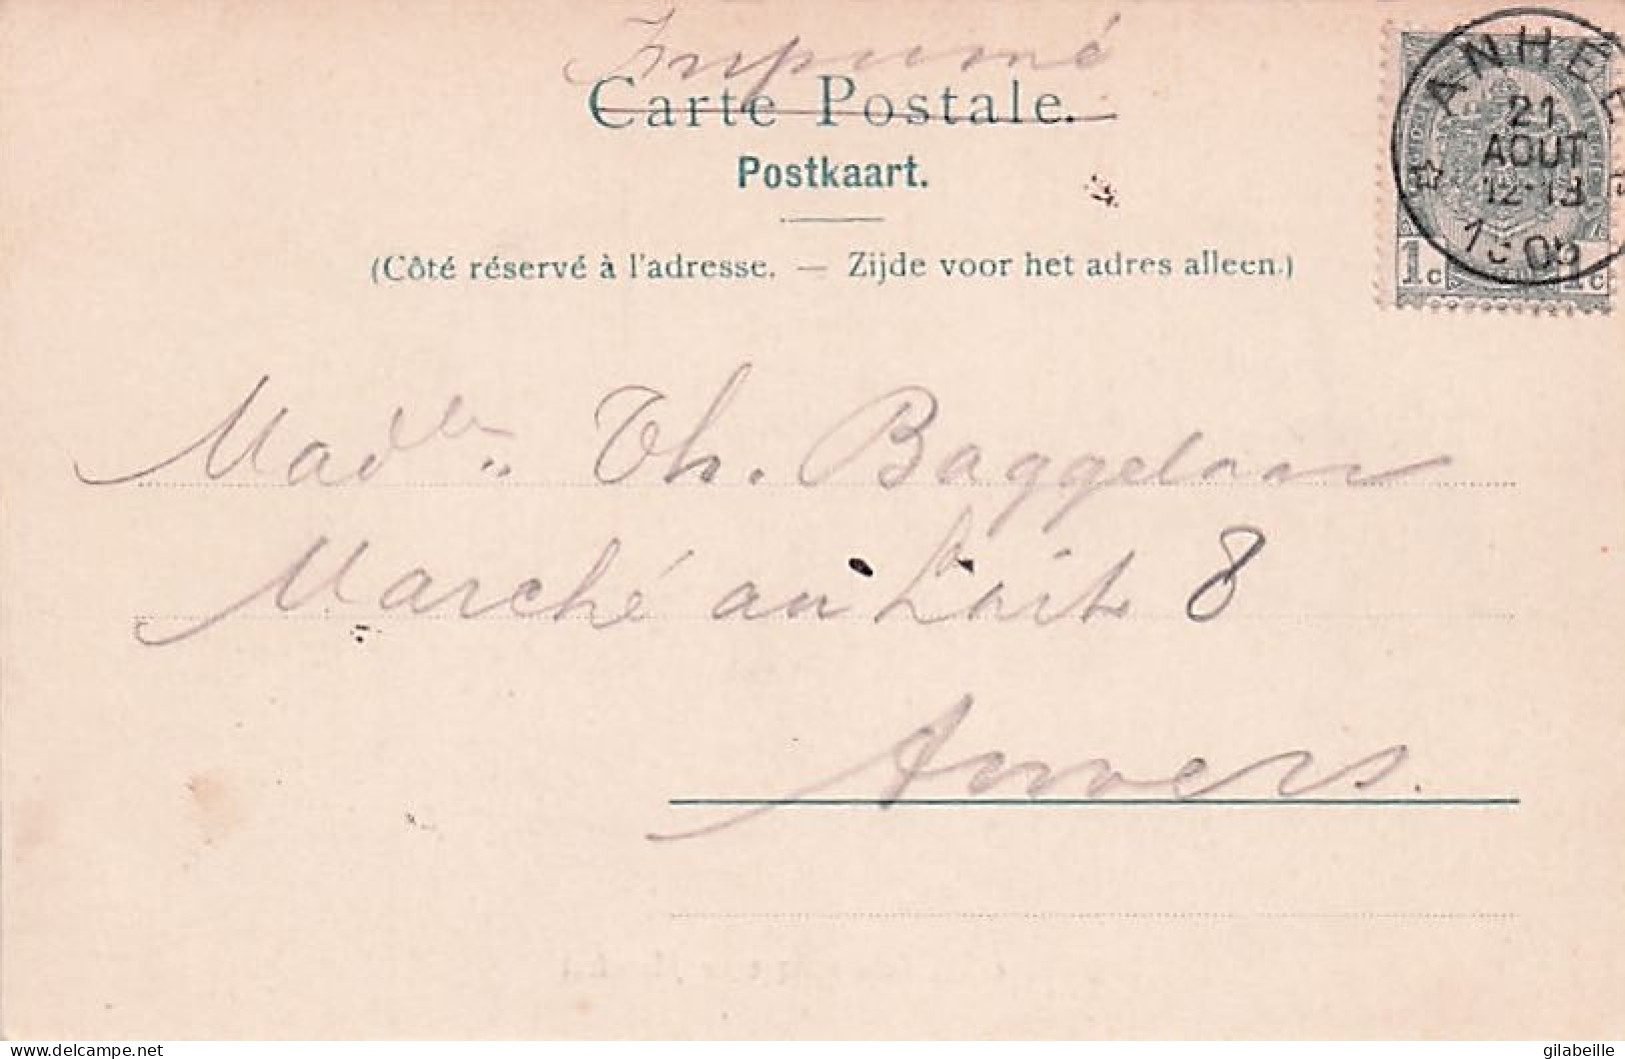 Imprimé
Carte Postale.
Postkaart.
(Côté réservé à l'adresse. — Zijde voor het adres alleen.)
ANHÉE
21
AOUT
12-13
1c 1c
Madlle Th. Baggelaar
Marché au Lait 8
Anvers.
delcampe.net
gilabeille